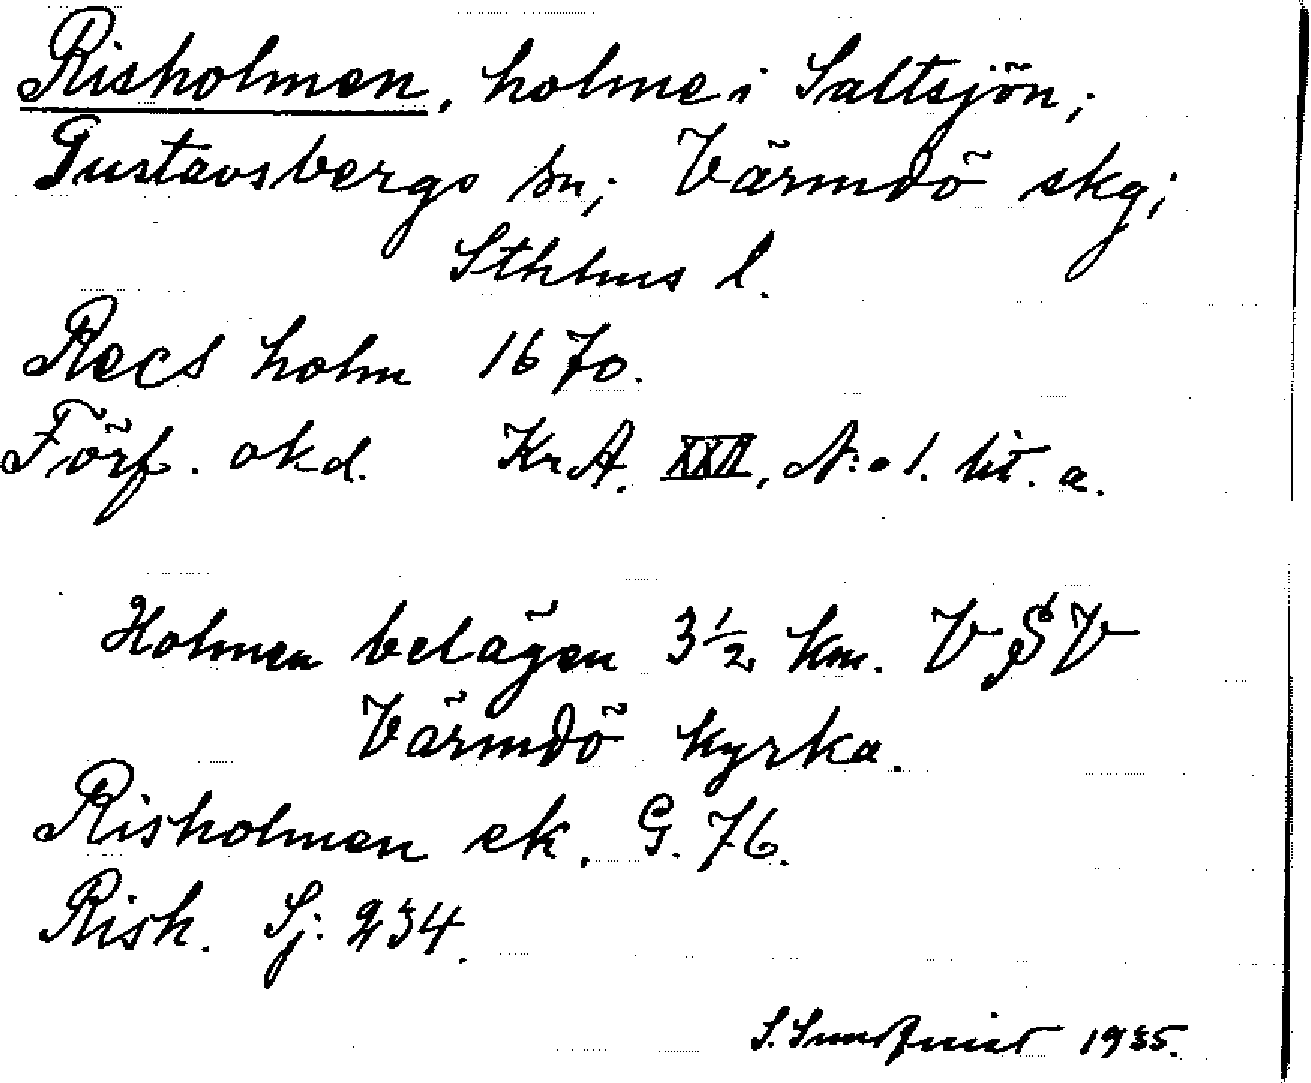 Risholmen, holme i Saltsjön;
Gustavsbergs sn; Värmdö skg;
Sthlms l.
Recs holm 1670.
Förf. okd. Kr.A. XXII, N:o 1. lit. a.
Holmen belägen 3 1/2 km. VSV
Värmdö kyrka.
Risholmen ek. G. 76.
Rish. Sj: 234.
S. Sundquist 1935.